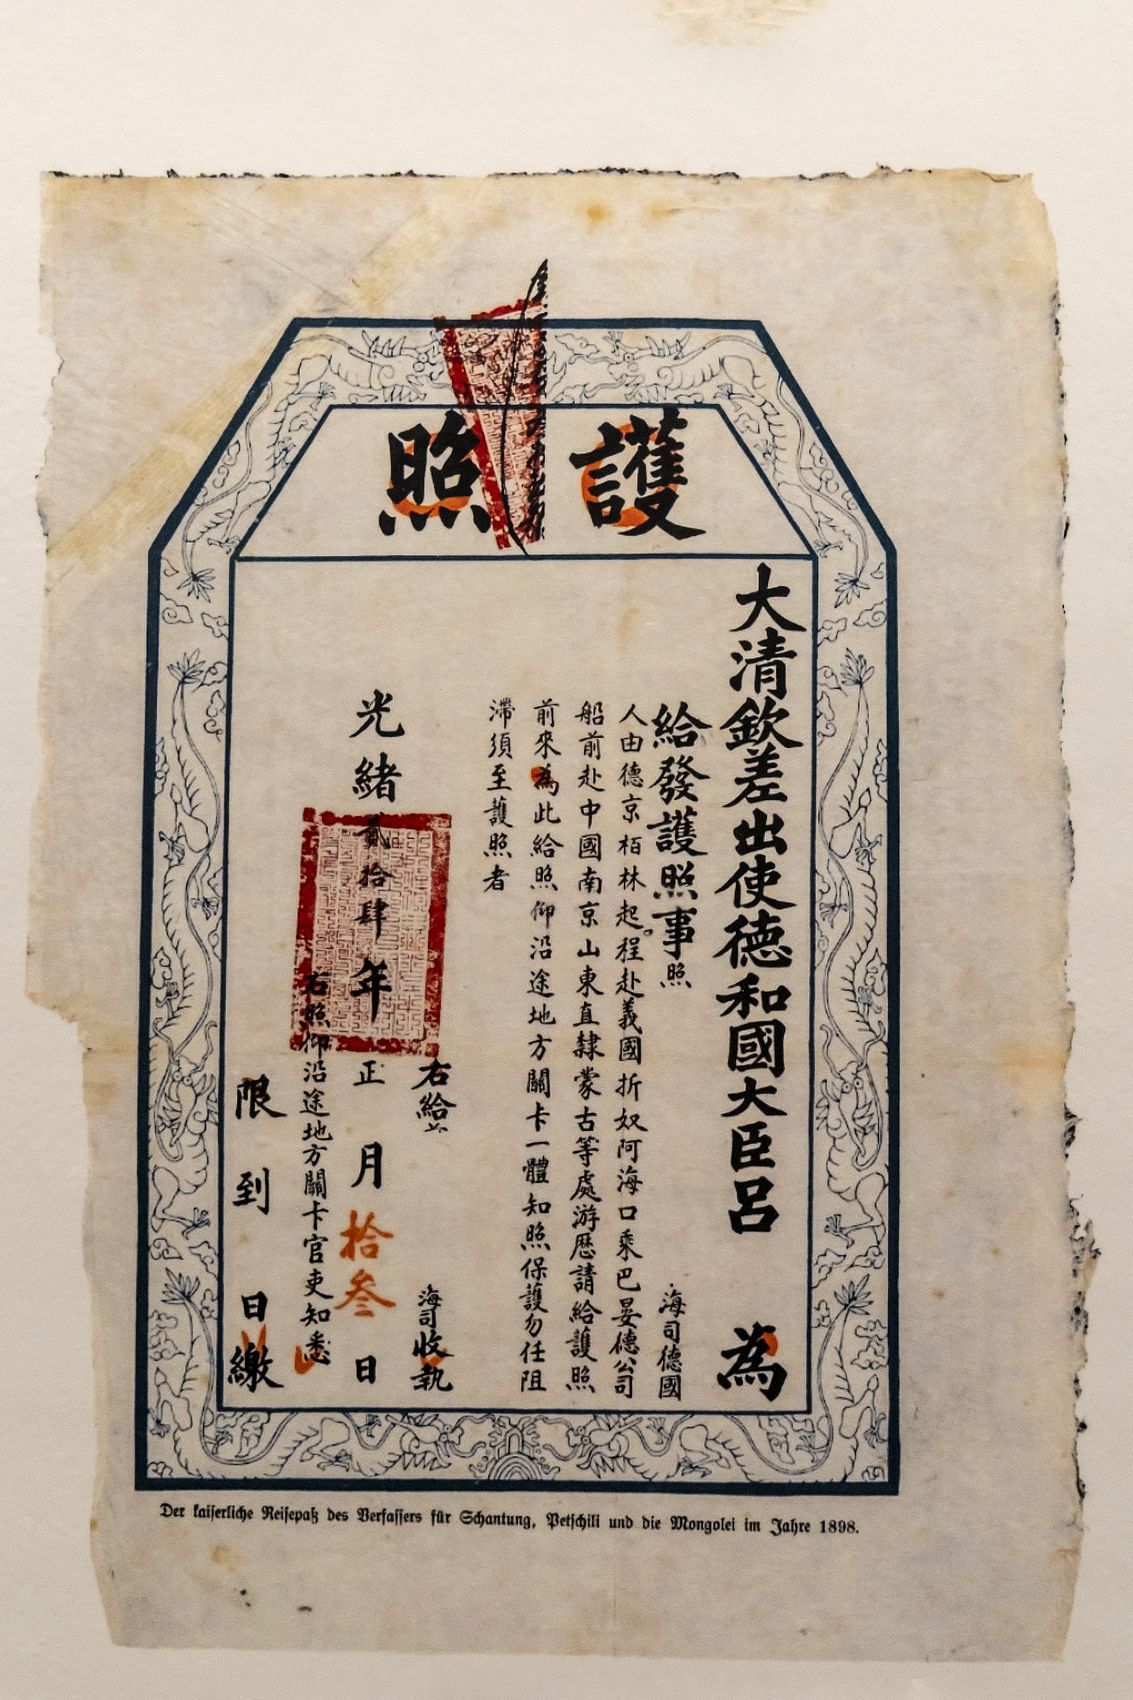 護照
大清欽差出使德和國大臣呂為
給發護照事照海司德國
人由德京栢林起程赴義國折奴阿海口乘巴晏德公司
船前赴中國南京山東直隸蒙古等處游歷請給護照
前來為此給照仰沿途地方關卡一體知照保護勿任阻
滯須至護照者
右給海司收執
光緒貳拾肆年正月拾叁日
右照仰沿途地方關卡官吏知悉
限到日繳
Der kaiserliche Reisepaß des Verfassers für Schantung, Petschili und die Mongolei im Jahre 1898.